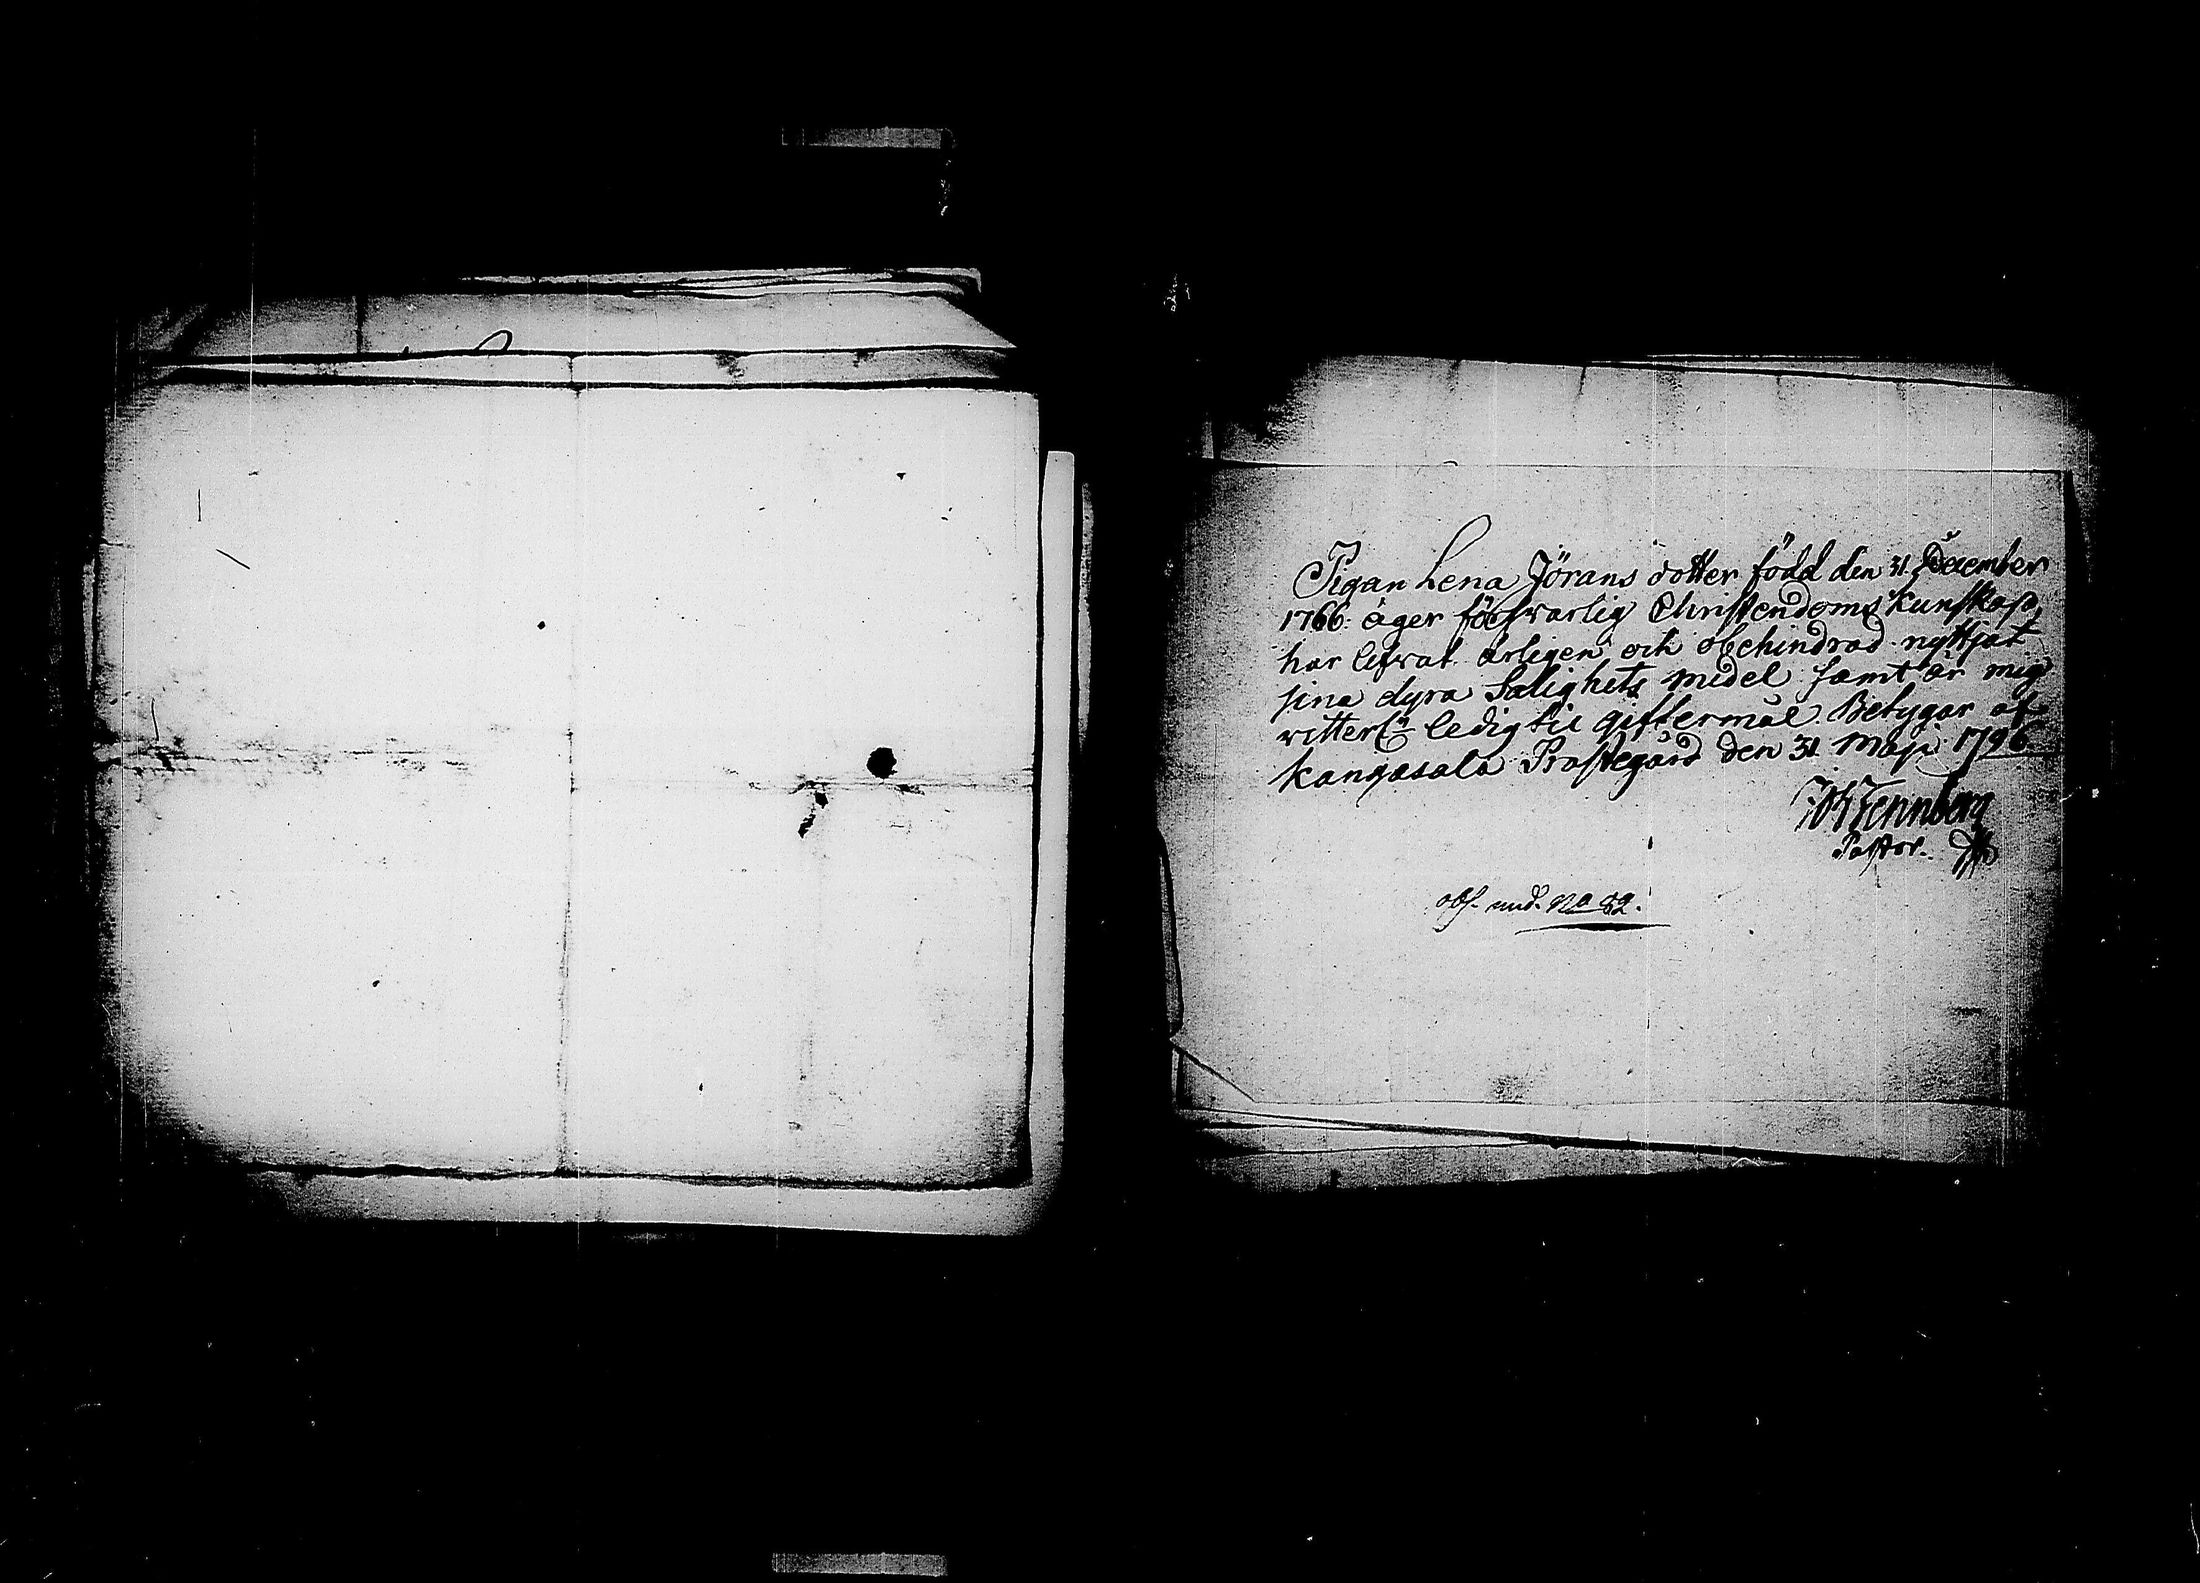 Pigan Lena Jörans dotter född den 31 December
1766. äger försvarlig Christendoms kunskap,
har lefvat ärligen och obehindrad nyttjat
sina dyra Salighets medel samt är mig
vitterl:n ledig til giftermål. Betygar af
Kangasala Prästegård den 31 Maji 1796.
Tennberg
Pastor.
obs. und. No 82.